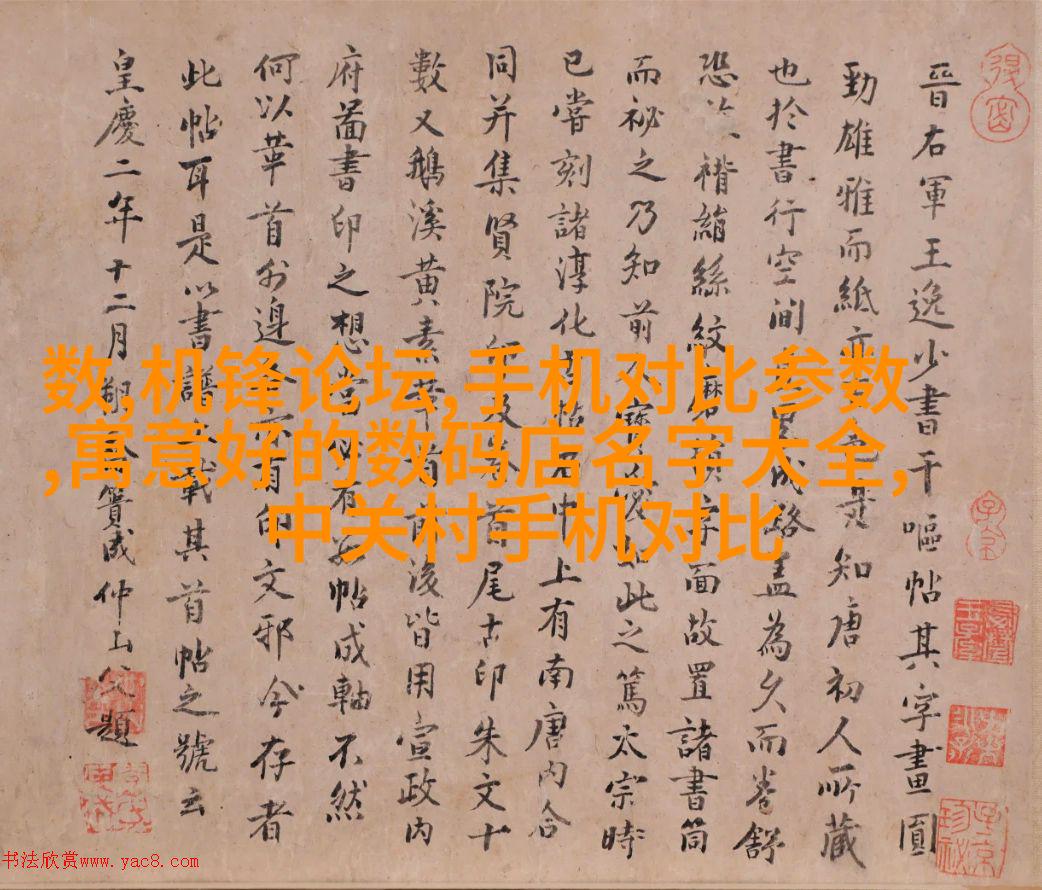 晉右軍王逸少書干嘔帖其字畫圓
勁雄雅而紙亦是知唐初人所藏
也於書行空間成略蓋為久而卷舒
恐褙絹絲紋磨字面故置諸書筒
而祕之乃知前此之篤太宗時
已嘗刻諸淳化中上有南唐內合
同并集賢院印及首尾古印朱文十
數又鵝溪黃素前後皆用宣政內
府圖書印之想當帖成軸不然
何以革首外邊文邪今存者
此帖耳是以書譜載其首帖之號云
皇慶二年十二月成仲山父題
数,机锋论坛,手机对比参数
,寓意好的数码店名字大全,
中关村手机对比
书法欣赏www.yac8.com